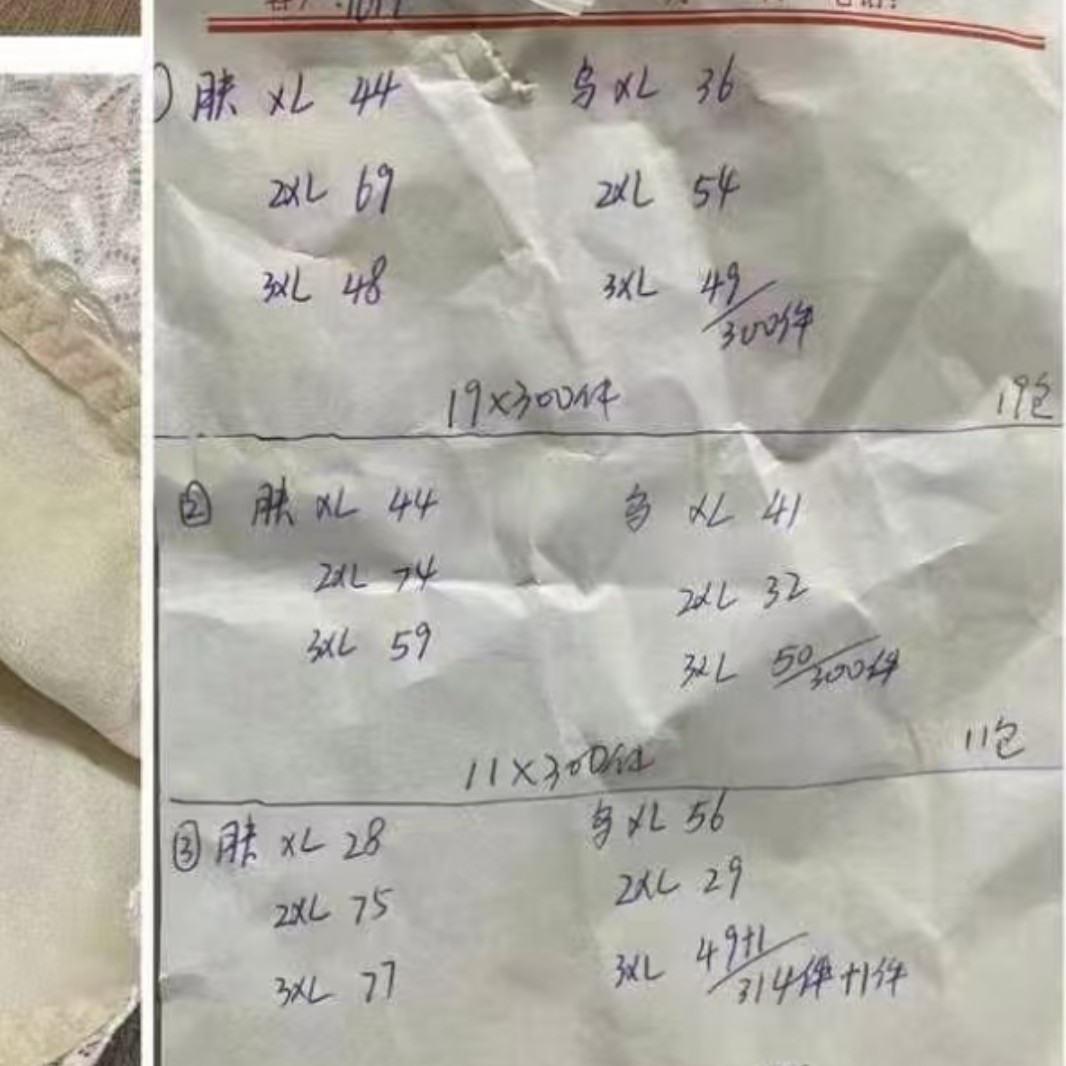 肤 XL 44 乌 XL 36
2XL 69 2XL 54
3XL 48 3XL 49/300件
19×300件 19包
② 肤 XL 44 乌 XL 41
2XL 74 2XL 32
3XL 59 3XL 50/300件
11×300件 11包
③ 肤 XL 28 乌 XL 56
2XL 75 2XL 29
3XL 77 3XL 49+1/314件+1件